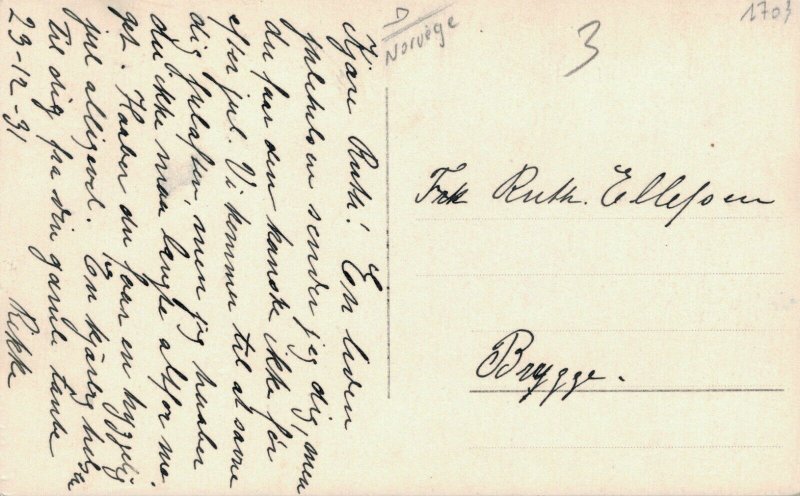 Kjære Ruth! En liden
julehilsen sender jeg dig, men
du faar den kanske ikke før
efter jul. Vi kommer til at savne
dig julaften, men jeg haaber
du ikke maa længte altfor me
get. Haaber du faar en hyggelig
jul alligevel. En kjærlig hilsen
til dig fra din gamle tante
23-12-31 Rikka
Norvège
1703
3
Frk Ruth. Ellefsen
Brygge.